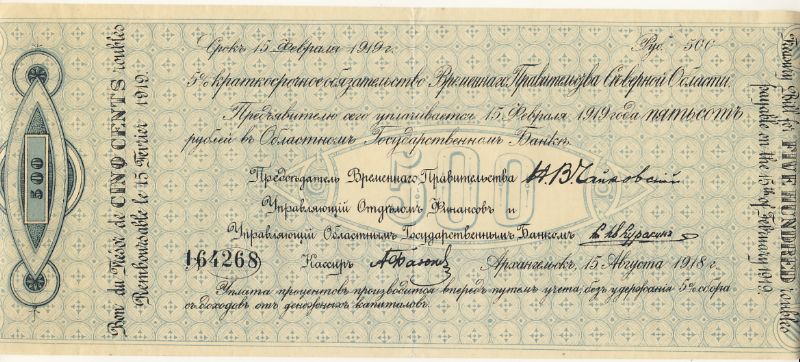 Срокъ 15 Февраля 1919 г. Руб. 500
5% краткосрочное обязательство Временнаго Правительства Сѣверной Области.
Предъявителю сего уплачивается 15 Февраля 1919 года пятьсотъ
рублей въ Областномъ Государственномъ Банкѣ.
Предсѣдатель Временнаго Правительства Н.В. Чайковскій
Управляющій Отдѣломъ Финансовъ и
Управляющій Областнымъ Государственнымъ Банкомъ Куракинъ
164268 Кассиръ Архангельскъ, 15 Августа 1918 г.
Уплата процентовъ производится впередъ путемъ учета, безъ удержанія 5% сбора
съ доходовъ отъ денежныхъ капиталовъ.
500
500
Bon du Trésor de CINQ CENTS roubles
Remboursable le 15 Février 1919.
Treasury Bill for FIVE HUNDRED roubles
payable on the 15th of February 1919.